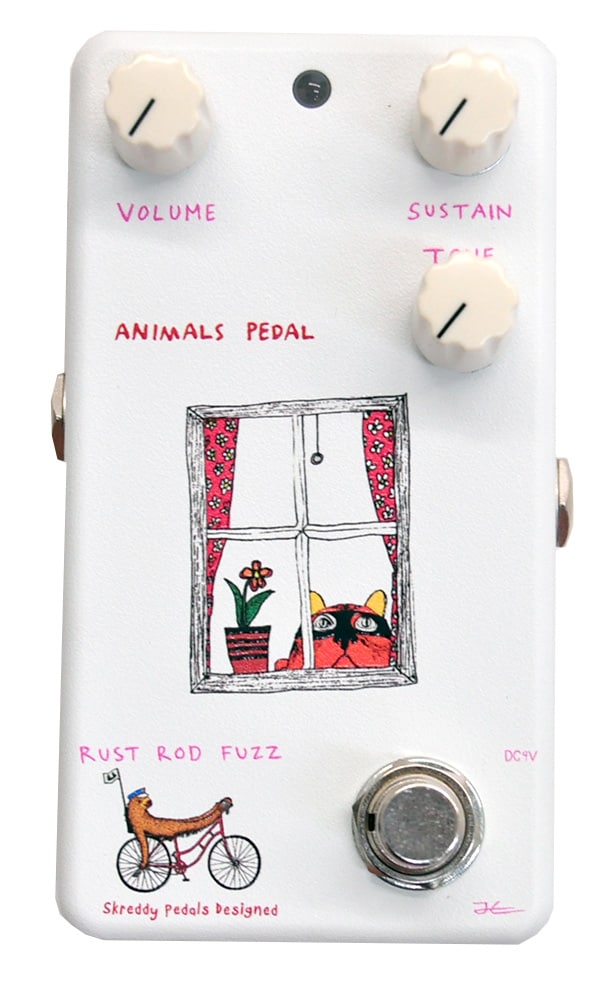 VOLUME
SUSTAIN
TONE
ANIMALS PEDAL
RUST ROD FUZZ
DC9V
Skreddy Pedals Designed